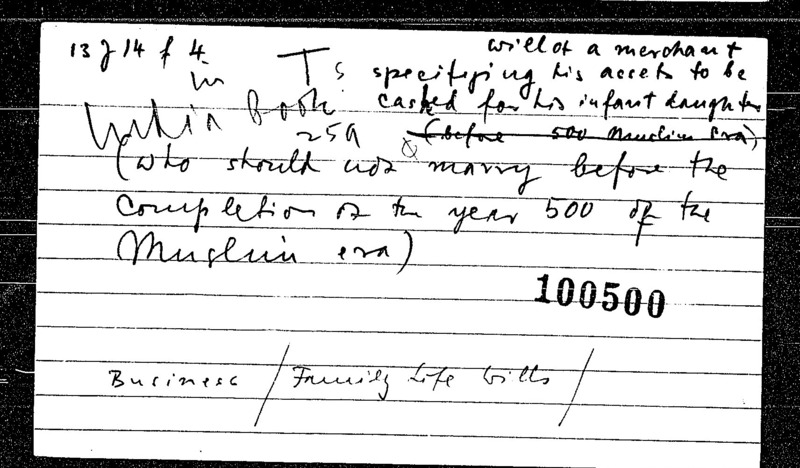 13 J 14 f 4 TS will of a merchant
in specifying his assets to be
India Book cashed for his infant daughter
259 (before 500 Muslim Era)
(who should not marry before the
completion of the year 500 of the
Muslim era)
100500
Business / Family Life Wills /